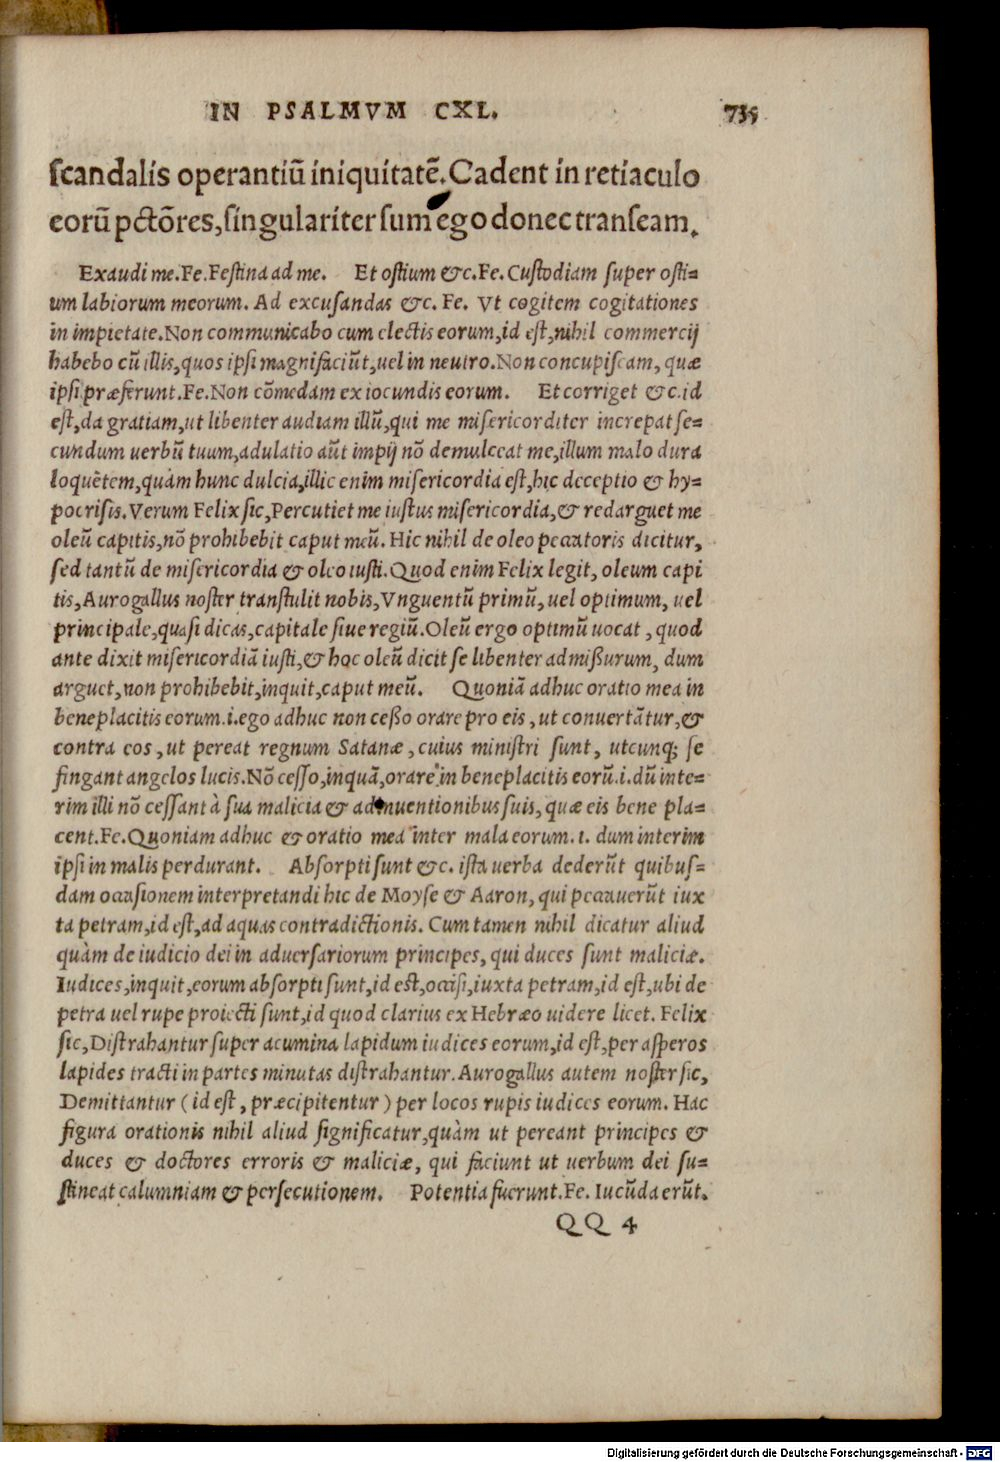 IN PSALMVM CXL. 735
scandalis operantiũ iniquitatẽ. Cadent in retiaculo
eorũ pctõres, singulariter sum ego donec transeam.
Exaudi me. Fe. Festina ad me. Et ostium &c. Fe. Custodiam super osti=
um labiorum meorum. Ad excusandas &c. Fe. Vt cogitem cogitationes
in impietate. Non communicabo cum electis eorum, id est, nihil commercij
habebo cũ illis, quos ipsi magnifaciũt, uel in neutro. Non concupiscam, quæ
ipsi præferunt. Fe. Non cõmedam ex iocundis eorum. Et corriget &c. id
est, da gratiam, ut libenter audiam illũ, qui me misericorditer increpat se=
cundum uerbũ tuum, adulatio aũt impij nõ demulceat me, illum malo dura
loquẽtem, quàm hunc dulcia, illic enim misericordia est, hic deceptio & hy=
pocrisis. Verum Felix sic, Percutiet me iustus misericordia, & redarguet me
oleũ capitis, nõ prohibebit caput meũ. Hic nihil de oleo peccatoris dicitur,
sed tantũ de misericordia & oleo iusti. Quod enim Felix legit, oleum capi
tis, Aurogallus noster transtulit nobis, Vnguentũ primũ, uel optimum, uel
principale, quasi dicas, capitale siue regiũ. Oleũ ergo optimũ uocat, quod
ante dixit misericordiã iusti, & hoc oleũ dicit se libenter admißurum, dum
arguet, non prohibebit, inquit, caput meũ. Quoniã adhuc oratio mea in
beneplacitis eorum .i. ego adhuc non ceßo orare pro eis, ut conuertãtur, &
contra eos, ut pereat regnum Satanæ, cuius ministri sunt, utcunq; se
fingant angelos lucis. Nõ cesso, inquã, orare in beneplacitis eorũ .i. dũ inte=
rim illi nõ cessant à sua malicia & adinuentionibus suis, quæ eis bene pla=
cent. Fe. Quoniam adhuc & oratio mea inter mala eorum .i. dum interim
ipsi in malis perdurant. Absorpti sunt &c. ista uerba dederũt quibus=
dam occasionem interpretandi hic de Moyse & Aaron, qui peccauerũt iux
ta petram, id est, ad aquas contradictionis. Cum tamen nihil dicatur aliud
quàm de iudicio dei in aduersariorum principes, qui duces sunt maliciæ.
Iudices, inquit, eorum absorpti sunt, id est, occisi, iuxta petram, id est, ubi de
petra uel rupe proiecti sunt, id quod clarius ex Hebræo uidere licet. Felix
sic, Distrahantur super acumina lapidum iudices eorum, id est, per asperos
lapides tracti in partes minutas distrahantur. Aurogallus autem noster sic,
Demittantur (id est, præcipitentur) per locos rupis iudices eorum. Hac
figura orationis nihil aliud significatur, quàm ut pereant principes &
duces & doctores erroris & maliciæ, qui faciunt ut uerbum dei su=
stineat calumniam & persecutionem. Potentia fuerunt. Fe. Iucũda erũt.
QQ 4
Digitalisierung gefördert durch die Deutsche Forschungsgemeinschaft - DFG